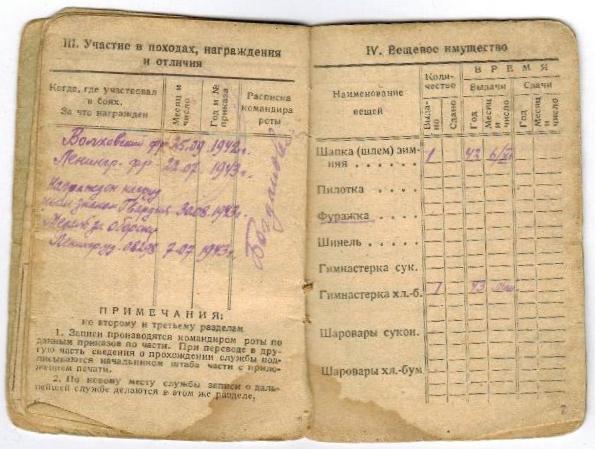 III. Участие в походах, награждения
и отличия
Когде, где участвовал
в боях.
За что награжден
Месяц и
число
Год и №
приказа
Расписка
командира
роты
Волховский фр. 25.09 1942г.
Ленингр. фр 22.07 1943г.
знаком Гвардия 30.08.1943г.
Медаль за оборону
7-07 1943г.
ПРИМЕЧАНИЯ:
ко второму и третьему разделам
1. Записи производятся командиром роты по
данным приказов по части. При переводе в дру-
гую часть сведения о прохождении службы под-
писываются начальником штаба части с прило-
жением печати.
2. По новому месту службы записи о даль-
нейшей службе делаются в этом же разделе,
IV. Вещевое имущество
Наименование
вещей
Коли-
чество
ВРЕМЯ
Выдачи
Сдачи
Выда-
но
Сдано
Год
Месяц
и
число
Год
Месяц
и
число
Шапка (шлем) зим-
няя . . . . . 1 42 6/XI
Пилотка . . . . .
Фуражка . . . . .
Шинель . . . . .
Гимнастерка сук.
Гимнастерка хл.-б. 1 43
Шаровары сукон.
Шаровары хл.-бум
7